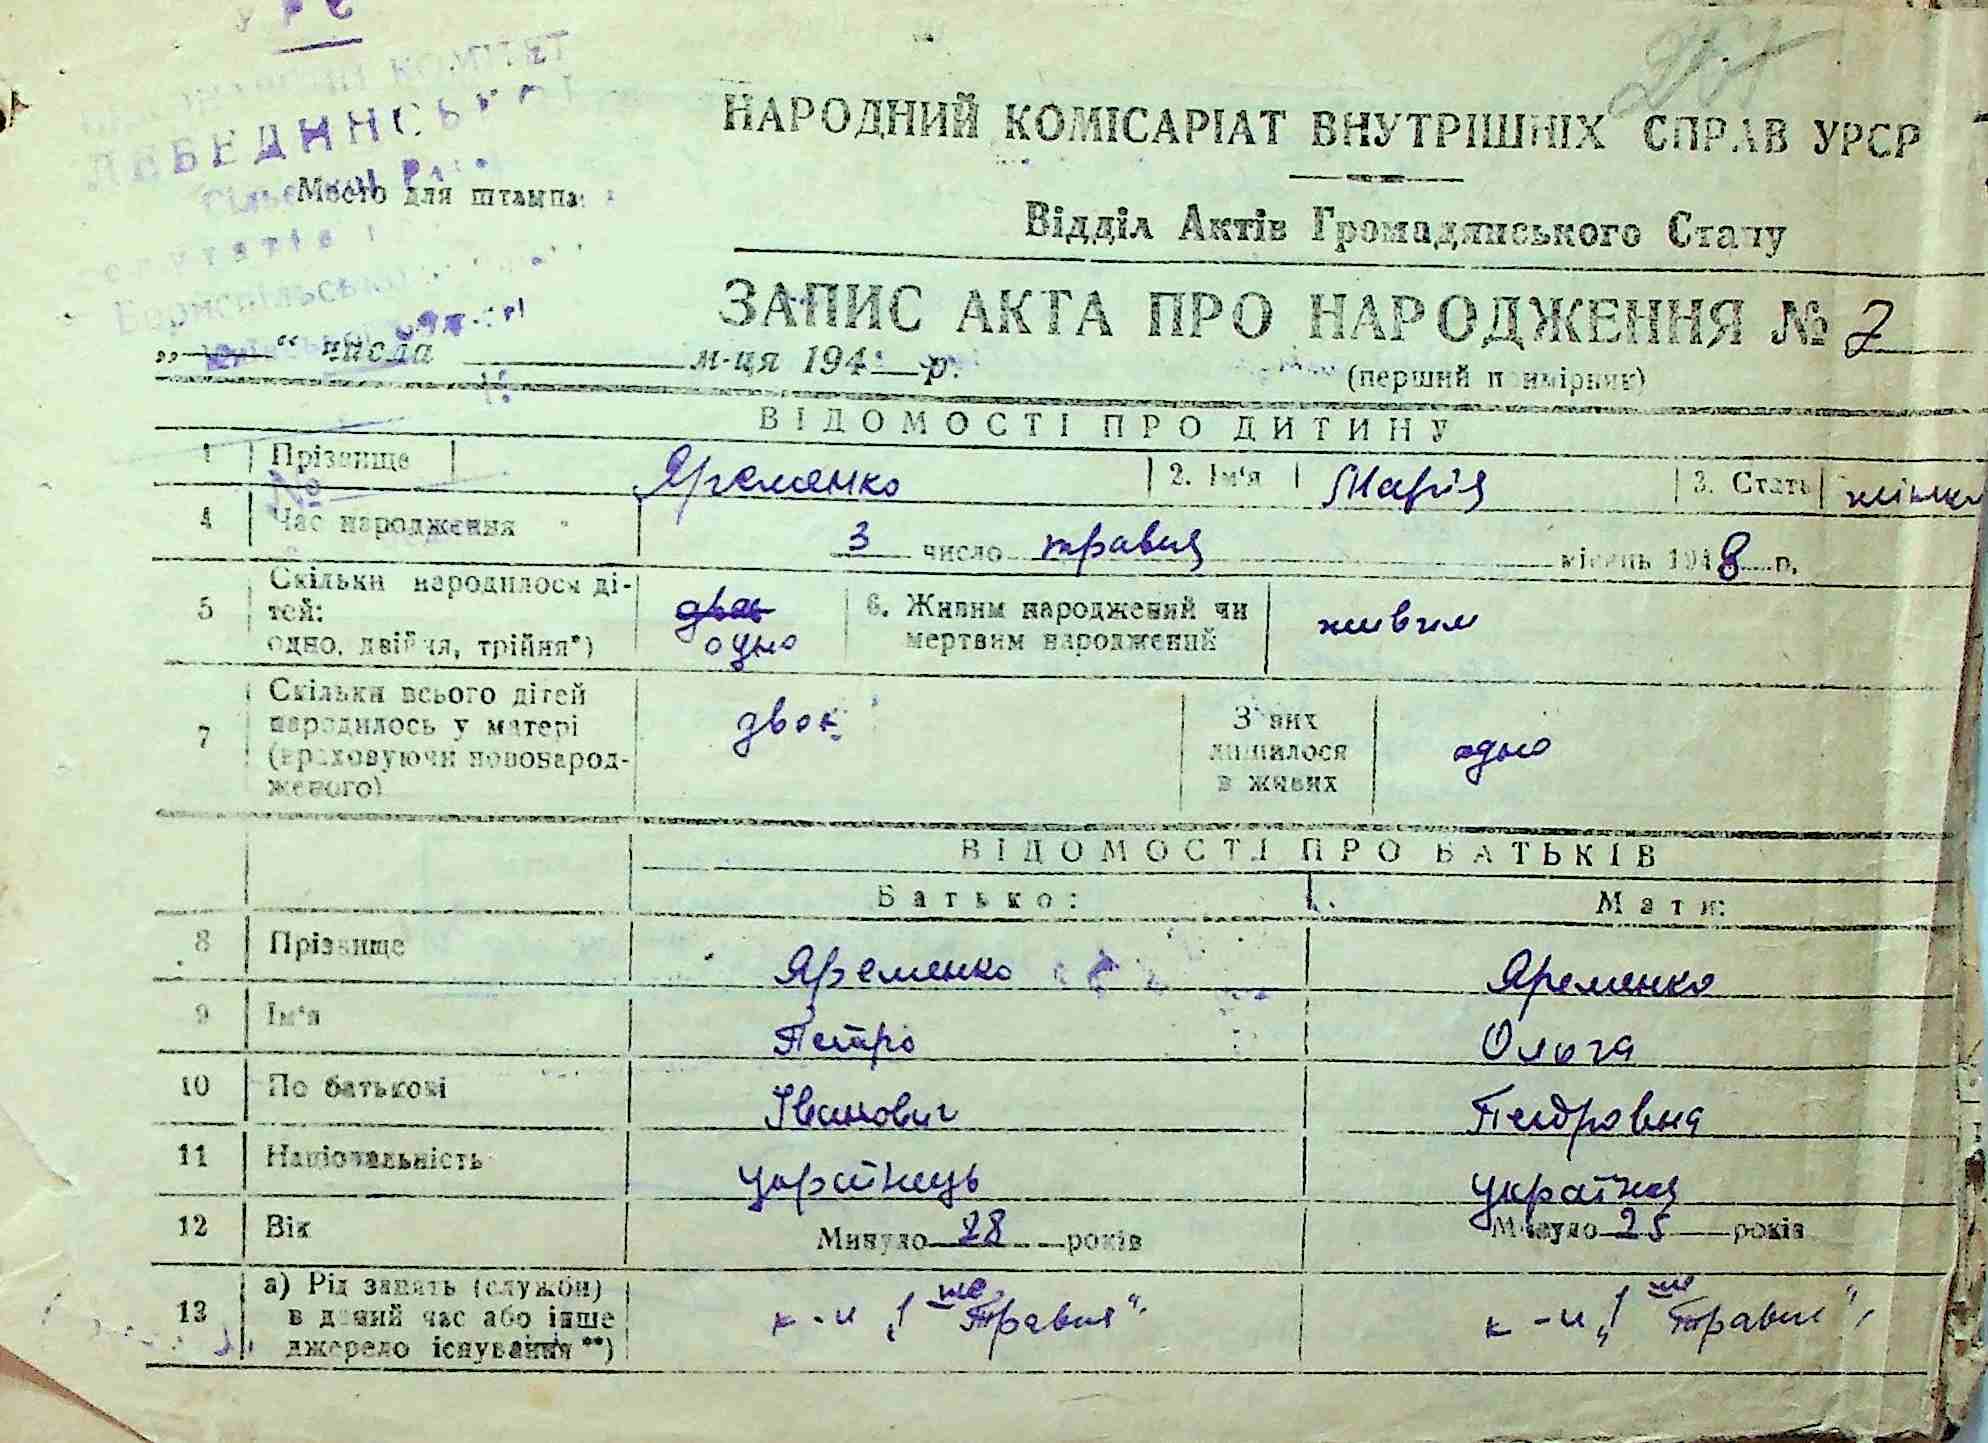 УРС
КОМІТЕТ
ЛЕБЕДИНСЬКОЇ
Сільської Ради
Место для штампа
депутатів
Бориспільського
НАРОДНИЙ КОМІСАРІАТ ВНУТРІШНІХ СПРАВ УРСР
Відділ Актів Громадянського Стану
ЗАПИС АКТА ПРО НАРОДЖЕННЯ № 7
„ “ числа м-ця 194 р.
(перший примірник)
ВІДОМОСТІ ПРО ДИТИНУ
1 Прізвище Яременко 2. Ім‘я Марія 3. Стать
№
4 Час народження 3 число травня місяць 1948 р.
5 Скільки народилося ді-
тей:
одно, двійня, трійня*) одно
6. Живим народжений чи
мертвим народжений живим
7 Скільки всього дітей
народилось у матері
(враховуючи новонарод-
женого) двоє
З них
лишилося
в живих одно
ВІДОМОСТІ ПРО БАТЬКІВ
Батько: Мати:
8 Прізвище Яременко Яременко
9 Ім‘я Петро Ольга
10 По батькові Іванович Педровна
11 Національність українець українка
12 Вік Минуло 28 років Минуло 25 років
13 а) Рід занять (служби)
в даний час або інше
джерело існування **)
к-п „1 ше Травня“ к-п „1 ше Травня“